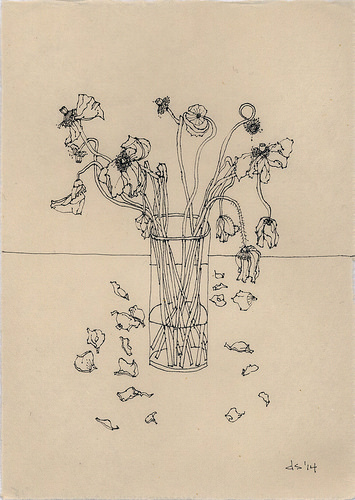 ds '14